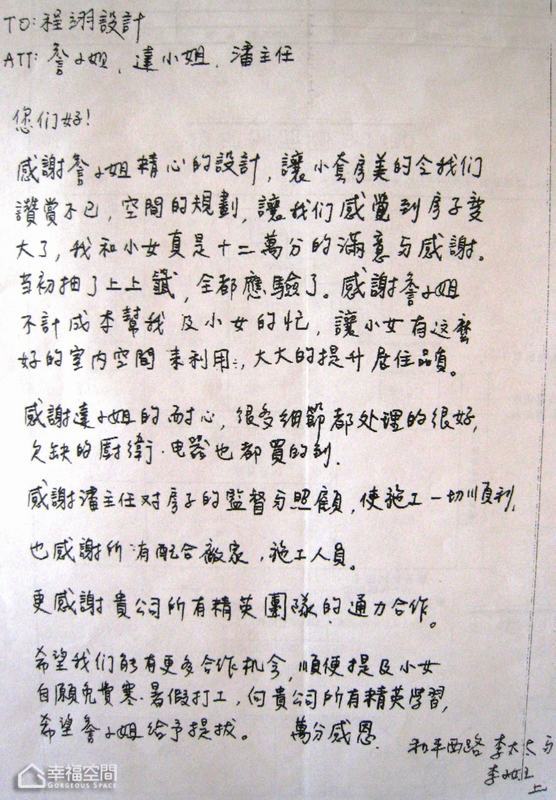 TO: 程翊設計
ATT: 詹小姐、達小姐、潘主任
您们好!
感謝詹小姐精心的設計，讓小套房美的令我们
讚賞不已，空間的規劃，讓我们感覺到房子變
大了，我和小女真是十二萬分的滿意与感謝。
当初抽了上上籤，全都應驗了。感謝詹小姐
不計成本幫我及小女的忙，讓小女有这麼
好的室內空間來利用；大大的提升居住品質。
感謝達小姐的耐心，很多细節都处理的很好，
欠缺的廚衛、电器也都買的到.
感謝潘主任对房子的監督与照顧，使施工一切順利，
也感謝所有配合廠家，施工人員。
更感謝貴公司所有精英團隊的通力合作。
希望我们能有更多合作机会，順便提及小女
自願免費寒、暑假打工，向貴公司所有精英學習，
希望詹小姐給予提拔。 萬分感恩
和平西路 李太太与
李小姐
上
幸福空間
GORGEOUS SPACE